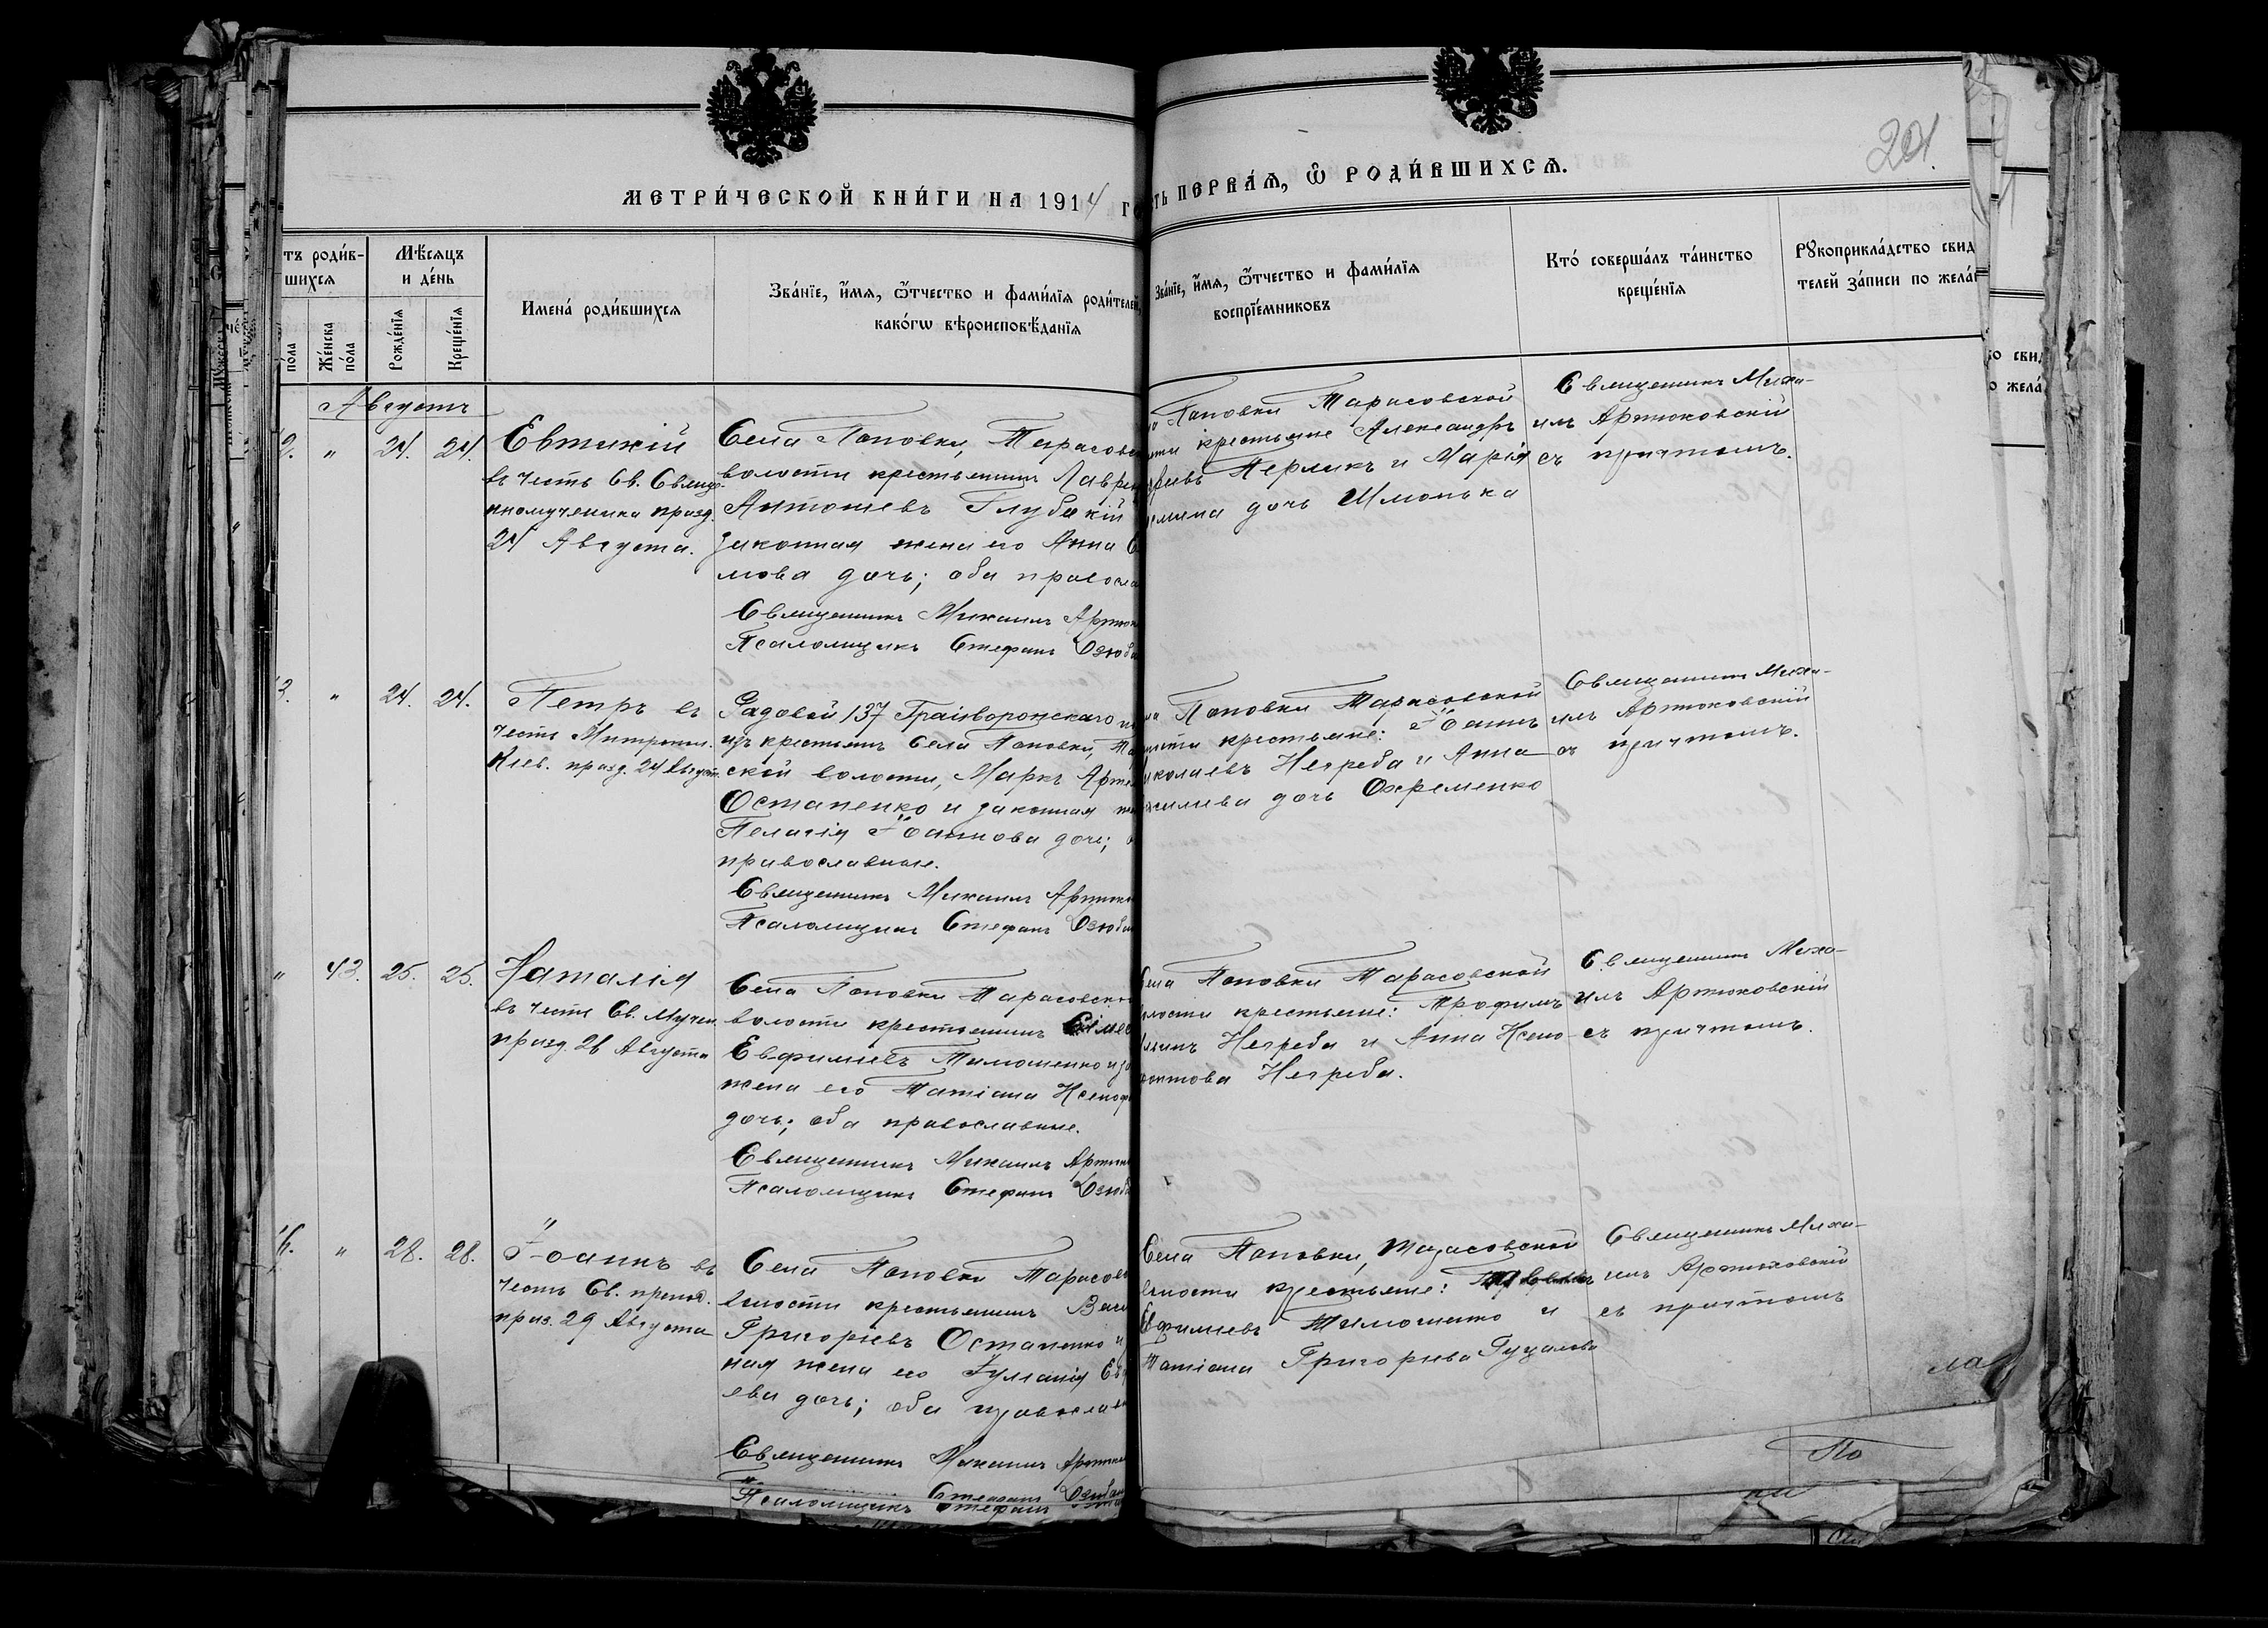 201.
МЕТРИ́ЧЕСКОЙ КНИ́ГИ НА 1914 го
сть ПЕРВА́Я, Ѡ РОДИ́ВШИХСЯ.
тъ роди́в-
шихся
по́ла
Же́нска
по́ла
Мѣ́сяцъ
и де́нь
Рожде́нїя
Креще́нїя
Имена̀ роди́вшихся
Зва́нїе, и́мя, ѻ́тчество и фами́лїя роди́телей,
како́гѡ вѣроисповѣ́данїя
Зва́нїе, и́мя, ѻ́тчество и фами́лїя
воспрїе́мниковъ
Кто̀ соверша́лъ та́инство
креще́нїя
Рꙋкоприкла́дство свид
телей за́писи по жела́
Августъ
2. " 24. 24.
Евтихій
въ честь Св. Священ-
номученика празд.
24 Августа.
Села Поповки, Тарасовс
волости крестьянинъ Лаврен
Антоніевъ Глубокій
законная жена его Анна С
мова дочь; оба правосла
Священникъ Михаилъ Артюхо
Псаломщикъ Стефанъ Дзюба
Поповки Тарасовской
сти крестьяне Александръ
Перликъ и Марія
дочь Шмонька
Священникъ Миха-
илъ Артюховскій
съ причтомъ.
3. " 24. 24.
Петръ въ
честь Митропол.
Кіев. празд. 24 Август.
Рядовой 137 Грайворонскаго
изъ крестьянъ Села Поповки, Та
ской волости, Маркъ Арте
Остапенко и законная
Пелагія Іоаннова дочь; о
православные.
Священникъ Михаилъ Артюхо
Псаломщикъ Стефанъ Дзюба
Поповки Тарасовской
сти крестьяне: Іоаннъ
иколаевъ Негреба и Анна
асильева дочь Охременко
Священникъ Миха-
илъ Артюховскій
съ причтомъ.
" 43. 25. 25.
Наталія
въ честь Св. Мучен.
празд. 26 Августа
Села Поповки Тарасовско
волости крестьянинъ Сѵмео
Евфиміевъ Тимошенко и за
жена его Татіана Ксеноф
дочь; оба православные.
Священникъ Михаилъ Артюхо
Псаломщикъ Стефанъ Дзюба
Села Поповки Тарасовской
олости крестьяне: Трофимъ
Негреба и Анна Ксено-
фонтова Негреба.
Священникъ Миха-
илъ Артюховскій
съ причтомъ.
" 28. 28.
Іоаннъ въ
честь Св. препод.
праз. 29 Августа
Села Поповки Тарасовс
волости крестьянинъ Васи
Григорьевъ Остапенко и
ная жена его Іуліанія Ев
ева дочь; оба православ
Священникъ Михаилъ Артюхо
Псаломщикъ Стефанъ Дзюба
Села Поповки, Тарасовской
волости крестьяне:
Ефиміевъ Тимошенко и
Татіана Григорьева
Священникъ Миха-
илъ Артюховскій
съ причтомъ
ла
По